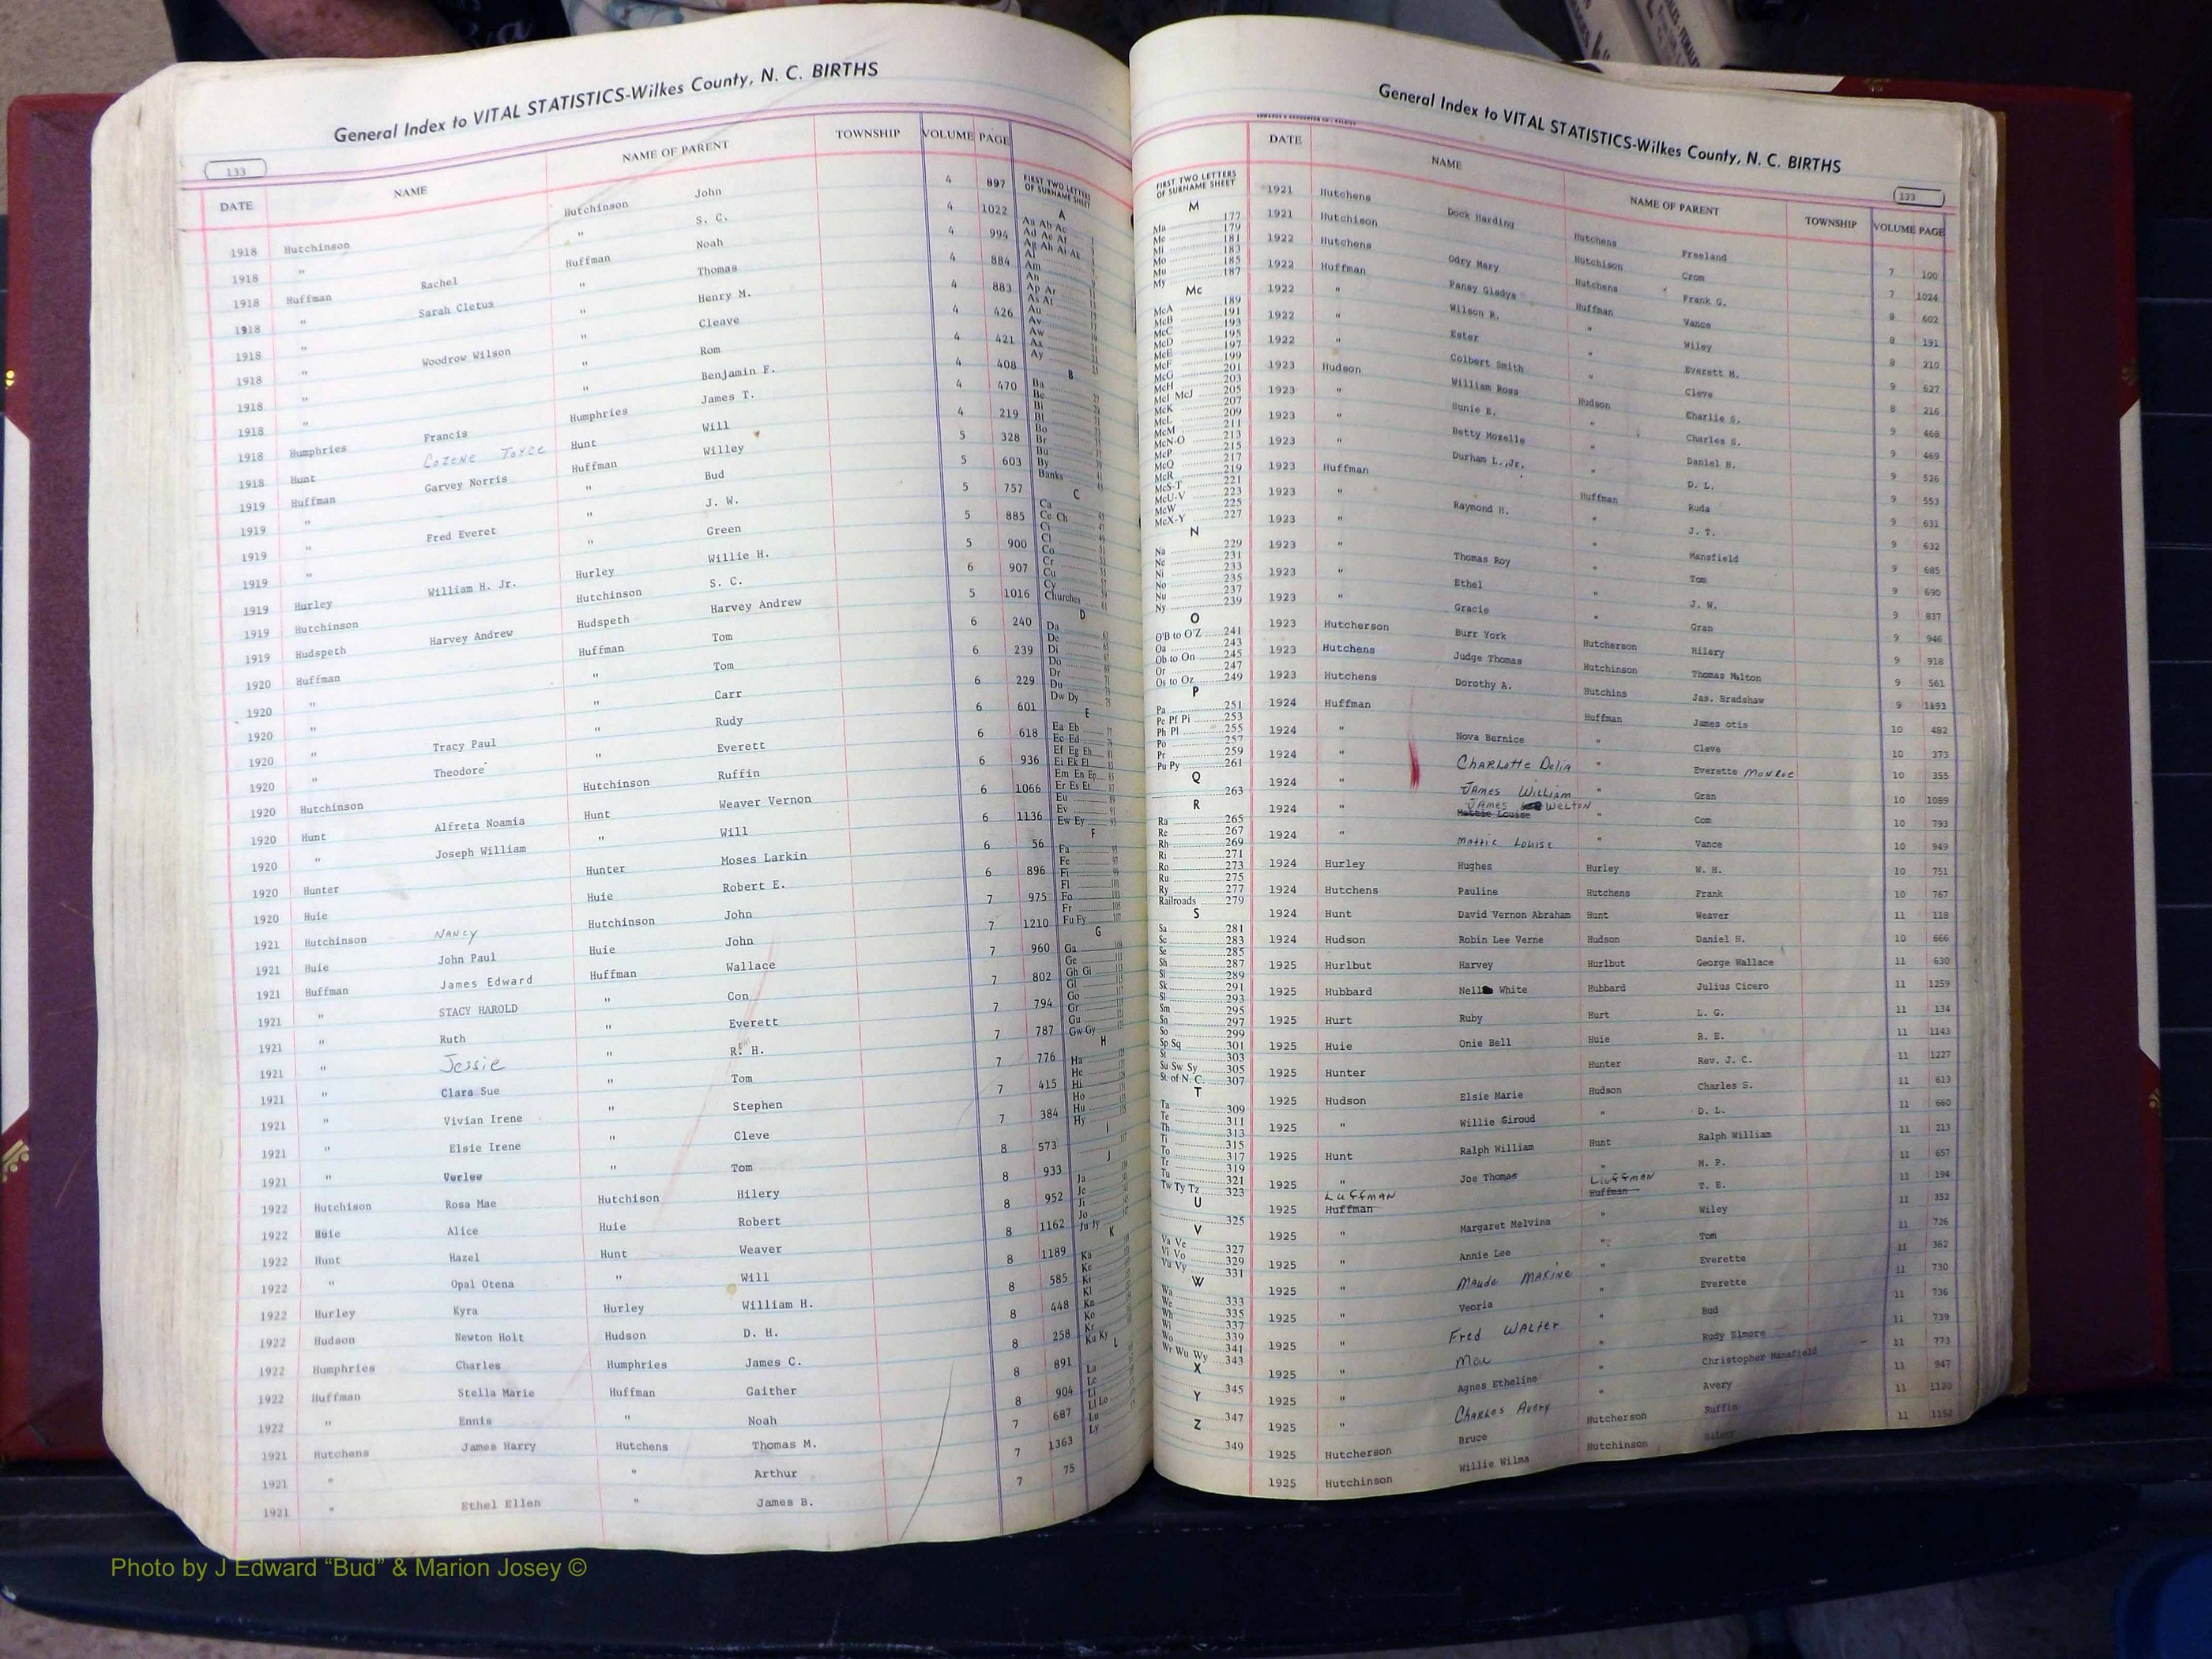 General Index to VITAL STATISTICS-Wilkes County, N. C. BIRTHS
133
DATE NAME NAME OF PARENT TOWNSHIP VOLUME PAGE
1918 Hutchinson Hutchinson John 4 897
1918 " " S. C. 4 1022
1918 Huffman Rachel Huffman Noah 4 994
1918 " Sarah Cletus " Thomas 4 884
1918 " " Henry M. 4 883
1918 " Woodrow Wilson " Cleave 4 426
1918 " " Rom 4 421
1918 " " Benjamin F. 4 408
1918 Humphries Francis Humphries James T. 4 470
1918 Hunt Cozene Joyce Hunt Will 4 219
1919 Huffman Garvey Norris Huffman Willey 5 328
1919 " " Bud 5 603
1919 " Fred Everet " J. W. 5 757
1919 " " Green 5 885
1919 Hurley William H. Jr. Hurley Willie H. 5 900
1919 Hutchinson Hutchinson S. C. 6 907
1919 Hudspeth Harvey Andrew Hudspeth Harvey Andrew 5 1016
1920 Huffman Huffman Tom 6 240
1920 " " Tom 6 239
1920 " " Carr 6 229
1920 " Tracy Paul " Rudy 6 601
1920 " Theodore " Everett 6 618
1920 Hutchinson Hutchinson Ruffin 6 936
1920 Hunt Alfreta Noamia Hunt Weaver Vernon 6 1066
1920 " Joseph William " Will 6 1136
1920 Hunter Hunter Moses Larkin 6 56
1920 Huie Huie Robert E. 6 896
1921 Hutchinson NANCY Hutchinson John 7 975
1921 Huie John Paul Huie John 7 1210
1921 Huffman James Edward Huffman Wallace 7 960
1921 " STACY HAROLD " Con 7 802
1921 " Ruth " Everett 7 794
1921 " Jessie " R. H. 7 787
1921 " Clara Sue " Tom 7 776
1921 " Vivian Irene " Stephen 7 415
1921 " Elsie Irene " Cleve 7 384
1921 " Verlee " Tom 8 573
1922 Hutchison Rosa Mae Hutchison Hilery 8 933
1922 Huie Alice Huie Robert 8 952
1922 Hunt Hazel Hunt Weaver 8 1162
1922 " Opal Otena " Will 8 1189
1922 Hurley Kyra Hurley William H. 8 585
1922 Hudson Newton Holt Hudson D. H. 8 448
1922 Humphries Charles Humphries James C. 8 258
1922 Huffman Stella Marie Huffman Gaither 8 891
1922 " Ennis " Noah 8 904
1921 Hutchens James Harry Hutchens Thomas M. 7 687
1921 " " Arthur 7 1363
1921 " Ethel Ellen " James B. 7 75
FIRST TWO LETTERS OF SURNAME SHEET
A
Aa Ab Ac
Ad Ae Af
Ag Ah Ai Ak
Al
Am
An
Ap Ar
As At
Au
Av
Aw
Ax
Ay
B
Ba
Be
Bi
Bl
Bo
Br
Bu
By
Banks
C
Ca
Ce Ch
Ci
Cl
Co
Cr
Cu
Cy
Churches
D
Da
De
Di
Do
Dr
Du
Dw Dy
E
Ea Eb
Ec Ed
Ef Eg Eh
Ei Ek El
Em En Ep
Er Es Et
Eu
Ev
Ew Ey
F
Fa
Fe
Fi
Fl
Fo
Fr
Fu Fy
G
Ga
Ge
Gh Gi
Gl
Go
Gr
Gu
Gw Gy
H
Ha
He
Hi
Ho
Hu
Hy
I
J
Ja
Je
Ji
Jo
Ju Jy
K
Ka
Ke
Ki
Kl
Ko
Kr
Ku Ky
L
La
Le
Li
Ll Lo
Lu
Ly
General Index to VITAL STATISTICS-Wilkes County, N. C. BIRTHS
133
FIRST TWO LETTERS OF SURNAME SHEET
M
Ma 177
Me 179
Mi 181
Mo 183
Mu 185
My 187
Mc
McA 189
McB 191
McC 193
McD 195
McE 197
McF 199
McG 201
McH 203
McI McJ 205
McK 207
McL 209
McM 211
McN-O 213
McP 215
McQ 217
McR 219
McS-T 221
McU-V 223
McW 225
McX-Y 227
N
Na 229
Ne 231
Ni 233
No 235
Nu 237
Ny 239
O
O'B to O'Z 241
Oa 243
Ob to On 245
Or 247
Os to Oz 249
P
Pa 251
Pe Pf Pi 253
Ph Pl 255
Po 257
Pr 259
Pu Py 261
Q
263
R
Ra 265
Re 267
Rh 269
Ri 271
Ro 273
Ru 275
Ry 277
Railroads 279
S
Sa 281
Sc 283
Se 285
Sh 287
Si 289
Sk 291
Sl 293
Sm 295
Sn 297
So 299
Sp Sq 301
St 303
Su Sw Sy 305
St. of N. C. 307
T
Ta 309
Te 311
Th 313
Ti 315
To 317
Tr 319
Tu 321
Tw Ty Tz 323
U
325
V
Va Ve 327
Vi Vo 329
Vu Vy 331
W
Wa 333
We 335
Wh 337
Wi 339
Wo 341
Wr Wu Wy 343
X
345
Y
347
Z
349
DATE NAME NAME OF PARENT TOWNSHIP VOLUME PAGE
1921 Hutchens Dock Harding Hutchens Freeland 7 100
1921 Hutchison Hutchison Crom 7 1024
1922 Hutchens Odry Mary Hutchens Frank G. 8 602
1922 Huffman Pansy Gladys Huffman Vance 8 191
1922 " Wilson R. " Wiley 8 210
1922 " Ester " Everett M. 9 627
1922 " Colbert Smith " Cleve 8 216
1923 Hudson William Ross Hudson Charlie S. 9 468
1923 " Sunie E. " Charles S. 9 469
1923 " Betty Mozelle " Daniel H. 9 526
1923 " Durham L.,Jr. " D. L. 9 553
1923 Huffman Huffman Ruda 9 631
1923 " Raymond H. " J. T. 9 632
1923 " " Mansfield 9 685
1923 " Thomas Roy " Tom 9 690
1923 " Ethel " J. W. 9 837
1923 " Gracie " Gran 9 946
1923 Hutcherson Burr York Hutcherson Hilery 9 918
1923 Hutchens Judge Thomas Hutchinson Thomas Melton 9 561
1923 Hutchens Dorothy A. Hutchins Jas. Bradshaw 9 1193
1924 Huffman Huffman James otis 10 482
1924 " Nova Bernice " Cleve 10 373
1924 " CHARLOTTE DELIA " Everette MONROE 10 355
1924 " JAMES WILLIAM " Gran 10 1089
1924 " JAMES WELTON Mattie Louise " Com 10 793
1924 " Mattie Louise " Vance 10 949
1924 Hurley Hughes Hurley W. H. 10 751
1924 Hutchens Pauline Hutchens Frank 10 767
1924 Hunt David Vernon Abraham Hunt Weaver 11 118
1924 Hudson Robin Lee Verne Hudson Daniel H. 10 666
1925 Hurlbut Harvey Hurlbut George Wallace 11 630
1925 Hubbard Nell White Hubbard Julius Cicero 11 1259
1925 Hurt Ruby Hurt L. G. 11 134
1925 Huie Onie Bell Huie R. E. 11 1143
1925 Hunter Hunter Rev. J. C. 11 1227
1925 Hudson Elsie Marie Hudson Charles S. 11 613
1925 " Willie Giroud " D. L. 11 660
1925 Hunt Ralph William Hunt Ralph William 11 213
1925 " Joe Thomas " M. P. 11 657
1925 LUFFMAN Huffman LUFFMAN Huffman T. E. 11 194
1925 " Margaret Melvina " Wiley 11 352
1925 " Annie Lee " Tom 11 726
1925 " MAUDE MAXINE " Everette 11 362
1925 " Veoria " Everette 11 730
1925 " Fred WALTER " Bud 11 736
1925 " Mae " Rudy Elmore 11 739
1925 " Agnes Etheline " Christopher Mansfield 11 773
1925 " CHARLES Avery " Avery 11 947
1925 Hutcherson Bruce Hutcherson Ruffin 11 1120
1925 Hutchinson Willie Wilma Hutchinson 11 1152
Photo by J Edward “Bud” & Marion Josey ©